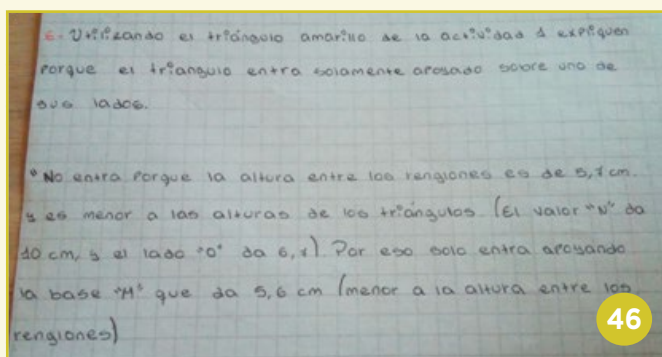 E- Utilizando el triángulo amarillo de la actividad 1 expliquen
porque el triangulo entra solamente apoyado sobre uno de
sus lados.
° No entra porque la altura entre los renglones es de 5,7 cm.
y es menor a las alturas de los triángulos. (El valor "N" da
10 cm, y el lado "O" da 6,1) Por eso solo entra apoyando
la base "M" que da 5,6 cm (menor a la altura entre los
renglones)
46